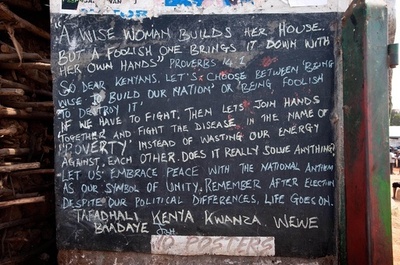 "A WISE WOMAN BUILDS HER HOUSE.
BUT A FOOLISH ONE BRINGS IT DOWN WITH
HER OWN HANDS" PROVERBS 14:1
SO DEAR KENYANS, LET'S CHOOSE BETWEEN 'BEING
WISE TO BUILD OUR NATION' OR 'BEING FOOLISH
TO DESTROY IT'
IF WE HAVE TO FIGHT, THEN LETS JOIN HANDS
TOGETHER AND FIGHT THE DISEASE, IN THE NAME OF
'POVERTY' INSTEAD OF WASTING OUR ENERGY
AGAINST, EACH OTHER. DOES IT REALLY SOLVE ANYTHING?
LET US EMBRACE PEACE WITH THE NATIONAL ANTHEM
AS OUR SYMBOL OF UNITY. REMEMBER AFTER ELECTION
DESPITE OUR POLITICAL DIFFERENCES, LIFE GOES ON.
TAFADHALI KENYA KWANZA WEWE
BAADAYE
NO POSTERS